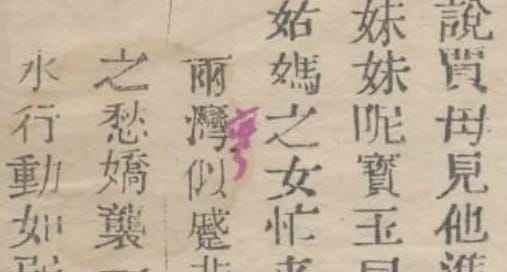 說賈母見他進
妹妹呢寶玉早
姑媽之女忙來
兩灣似蹙非
之愁嬌襲一
水行動如